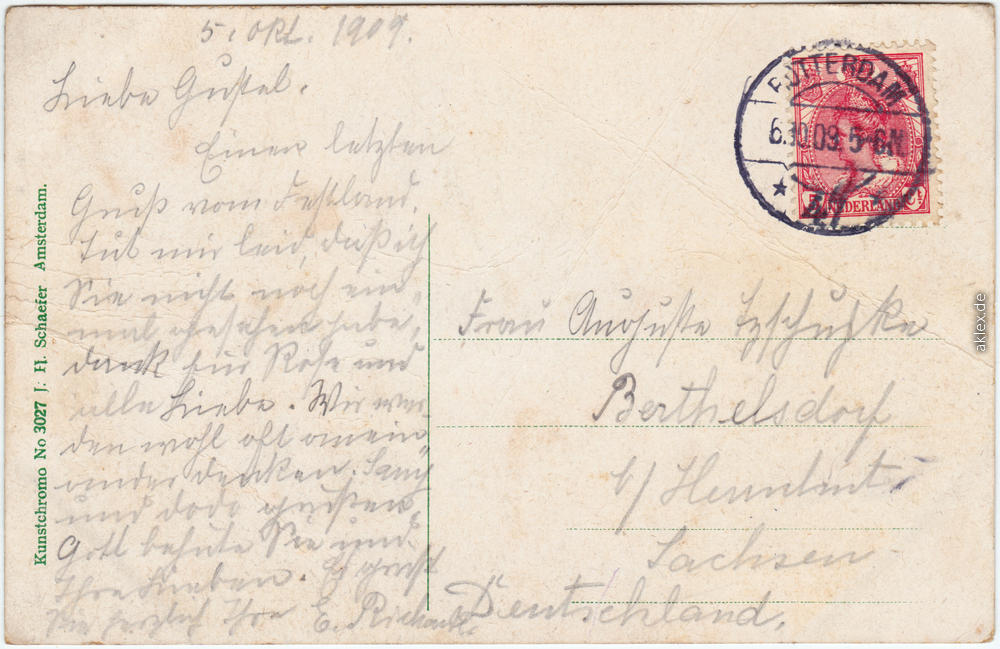 5. Okt. 1909.
Liebe Gustel.
Einen letzten
Gruß vom Festland.
Tut mir leid, daß ich
Sie nicht noch ein-
mal gesehen habe,
dank für Rose und
alle Liebe. Wir wer-
den wohl oft anein
ander denken.
und Dodo grüßen,
Gott behüte Sie und
Ihre Lieben. Es grüßt
Sie herzlich Ihre E.
Frau Auguste
Berthelsdorf
b/ Herrnhut
Sachsen
Deutschland.
ROTTERDAM
6.10.09. 5-6N
NEDERLAND
Kunstchromo No 3027 J. H. Schaefer Amsterdam.
aklex.de